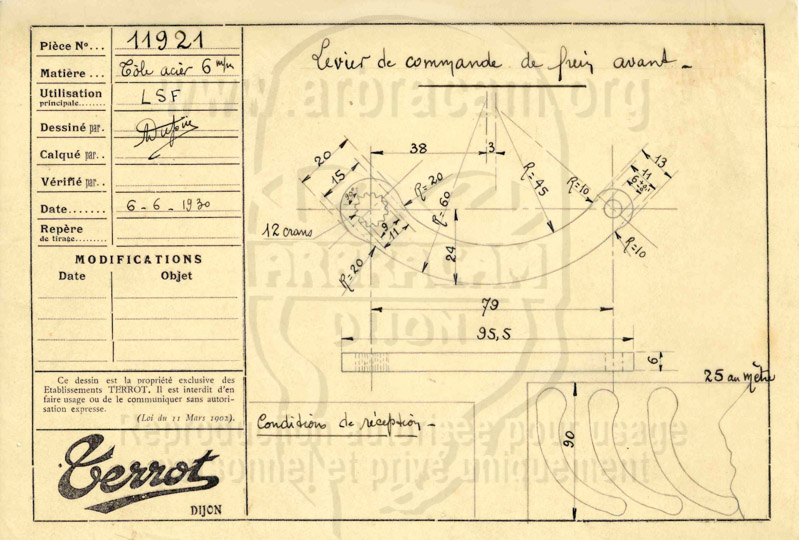 Pièce Nº... 11921
Matière ... Tôle acier 6 m/m
Utilisation principale....... LSF
Dessiné par.
Calqué par..
Vérifié par..
Date....... 6 - 6 - 1930
Repère de tirage.......
MODIFICATIONS
Date Objet
Ce dessin est la propriété exclusive des
Etablissements TERROT. Il est interdit d'en
faire usage ou de le communiquer sans autori-
sation expresse.
(Loi du 11 Mars 1902).
Terrot
DIJON
Levier de commande de frein avant -
20
15
38
3
R=20
R=45
R=60
R=10
13
11
12 crans
9
11
R=20
24
R=10
79
95,5
6
25 au mètre
Conditions de réception -
90
www.arbracam.org
ARBRACAM
DIJON
Reproduction autorisée pour usage
personnel et privé uniquement